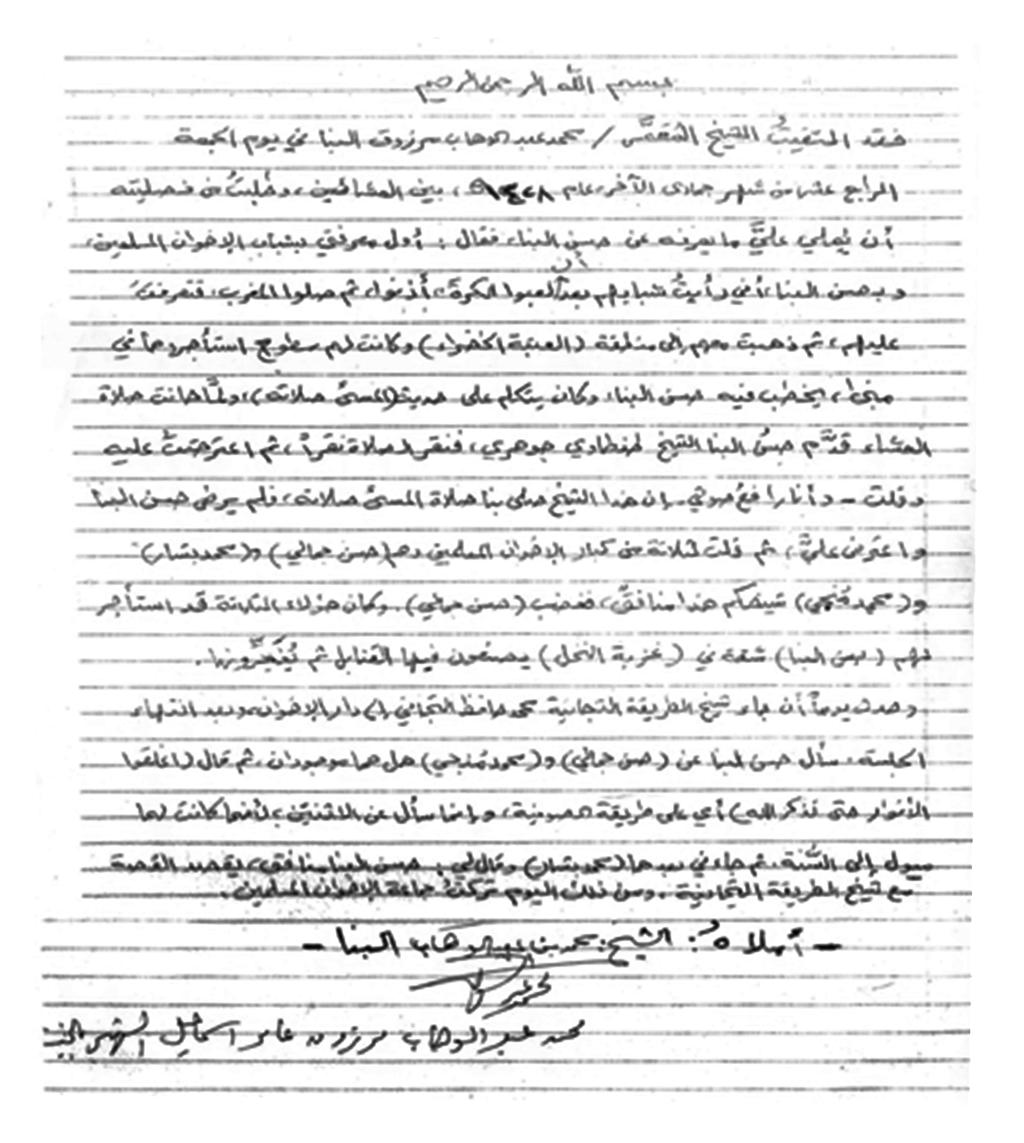 بسم الله الرحمن الرحيم
فقد التقيتُ الشيخ / محمد عبد الوهاب مرزوق البنا في يوم الجمعة
الرابع عشر من شهر جمادى الآخر، عام ١٤٢٨هـ، بين العشائين، وطلبتُ من فضيلته
أن يُملي عليَّ ما يعرفه عن حسن البنا، فقال: أول معرفتي بشباب الإخوان المسلمين،
وبحسن البنا، أني رأيتُ شبابهم بعد أن لعبوا الكرة، أذنوا، ثم صلوا المغرب، فتعرفتُ
عليهم، ثم ذهبت معهم إلى منطقة (العتبة الخضراء) وكانت لهم سطوح استأجروها في
مبنى، يخطب فيه حسن البنا، وكان يتكلم على حديث (المسئ صلاته)، ولمَّا حانت صلاة
العشاء قدَّم حسنُ البنا الشيخ طنطاوي جوهري، فنقر الصلاة نقراً، ثم اعترضتُ عليه
وقلت - وأنا رافعٌ صوتي - إن هذا الشيخ صلى بنا صلاة المسئ صلاته، فلم يرض حسن البنا
واعترض عليَّ، ثم قلت لثلاثة من كبار الإخوان المسلمين وهم (حسن جمالي) و(محمد بشار)
و(محمد) شيخكم هذا منافقٌ، فغضب (حسن جمالي). وكان هؤلاء الثلاثة قد استأجر
لهم (حسن البنا) شقة في (عزبة النحل) يصنعون فيها القنابل ثم يُفَجِّرونها.
وحدث يوماً أن جاء شيخ الطريقة التجانية محمد حافظ التجاني إلى دار الإخوان، وبعد انتهاء
الجلسة، سأل حسن البنا عن (حسن جمالي) و(محمد) هل هما موجودان، ثم قال (اغلقوا
الأنوار حتى نذكر الله) أي على طريقة الصوفية، وإنما سأل عن الاثنين، لأنهما كانت لهما
ميول إلى السُّنة، ثم جاءني بعدها (محمد بشار) وقال لي: حسن البنا منافق، يقصد القصة
مع شيخ الطريقة التجانية. ومن ذلك اليوم تركتُ جماعة الإخوان المسلمين.
- أملاهُ: الشيخ: محمد بن عبد الوهاب البنا -
محمد عبد الوهاب مرزوق عامر اسماعيل الشهير بالبنا